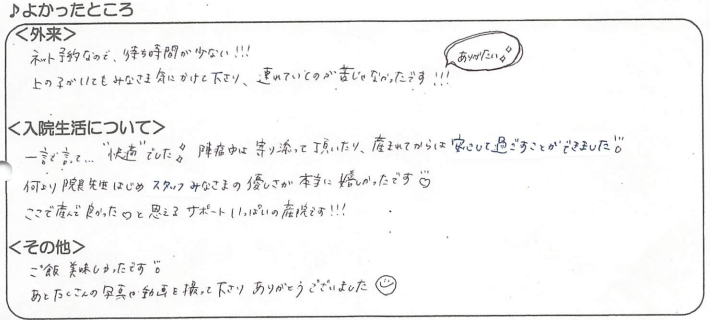 ♪よかったところ
＜外来＞
ネット予約なので、待ち時間が少ない!!!
ありがたい
上の子がいてもみなさま気にかけて下さり、連れていくのが苦じゃなかったです!!!
＜入院生活について＞
一言で言って…"快適"でした 陣痛中は寄り添って頂いたり、産まれてからは安心して過ごすことができました
何より院長先生はじめスタッフみなさまの優しさが本当に嬉しかったです♡
ここで産んで良かった♡と思えるサポートいっぱいの産院です!!!
＜その他＞
ご飯美味しかったです
あとたくさんの写真や動画を撮って下さりありがとうございました